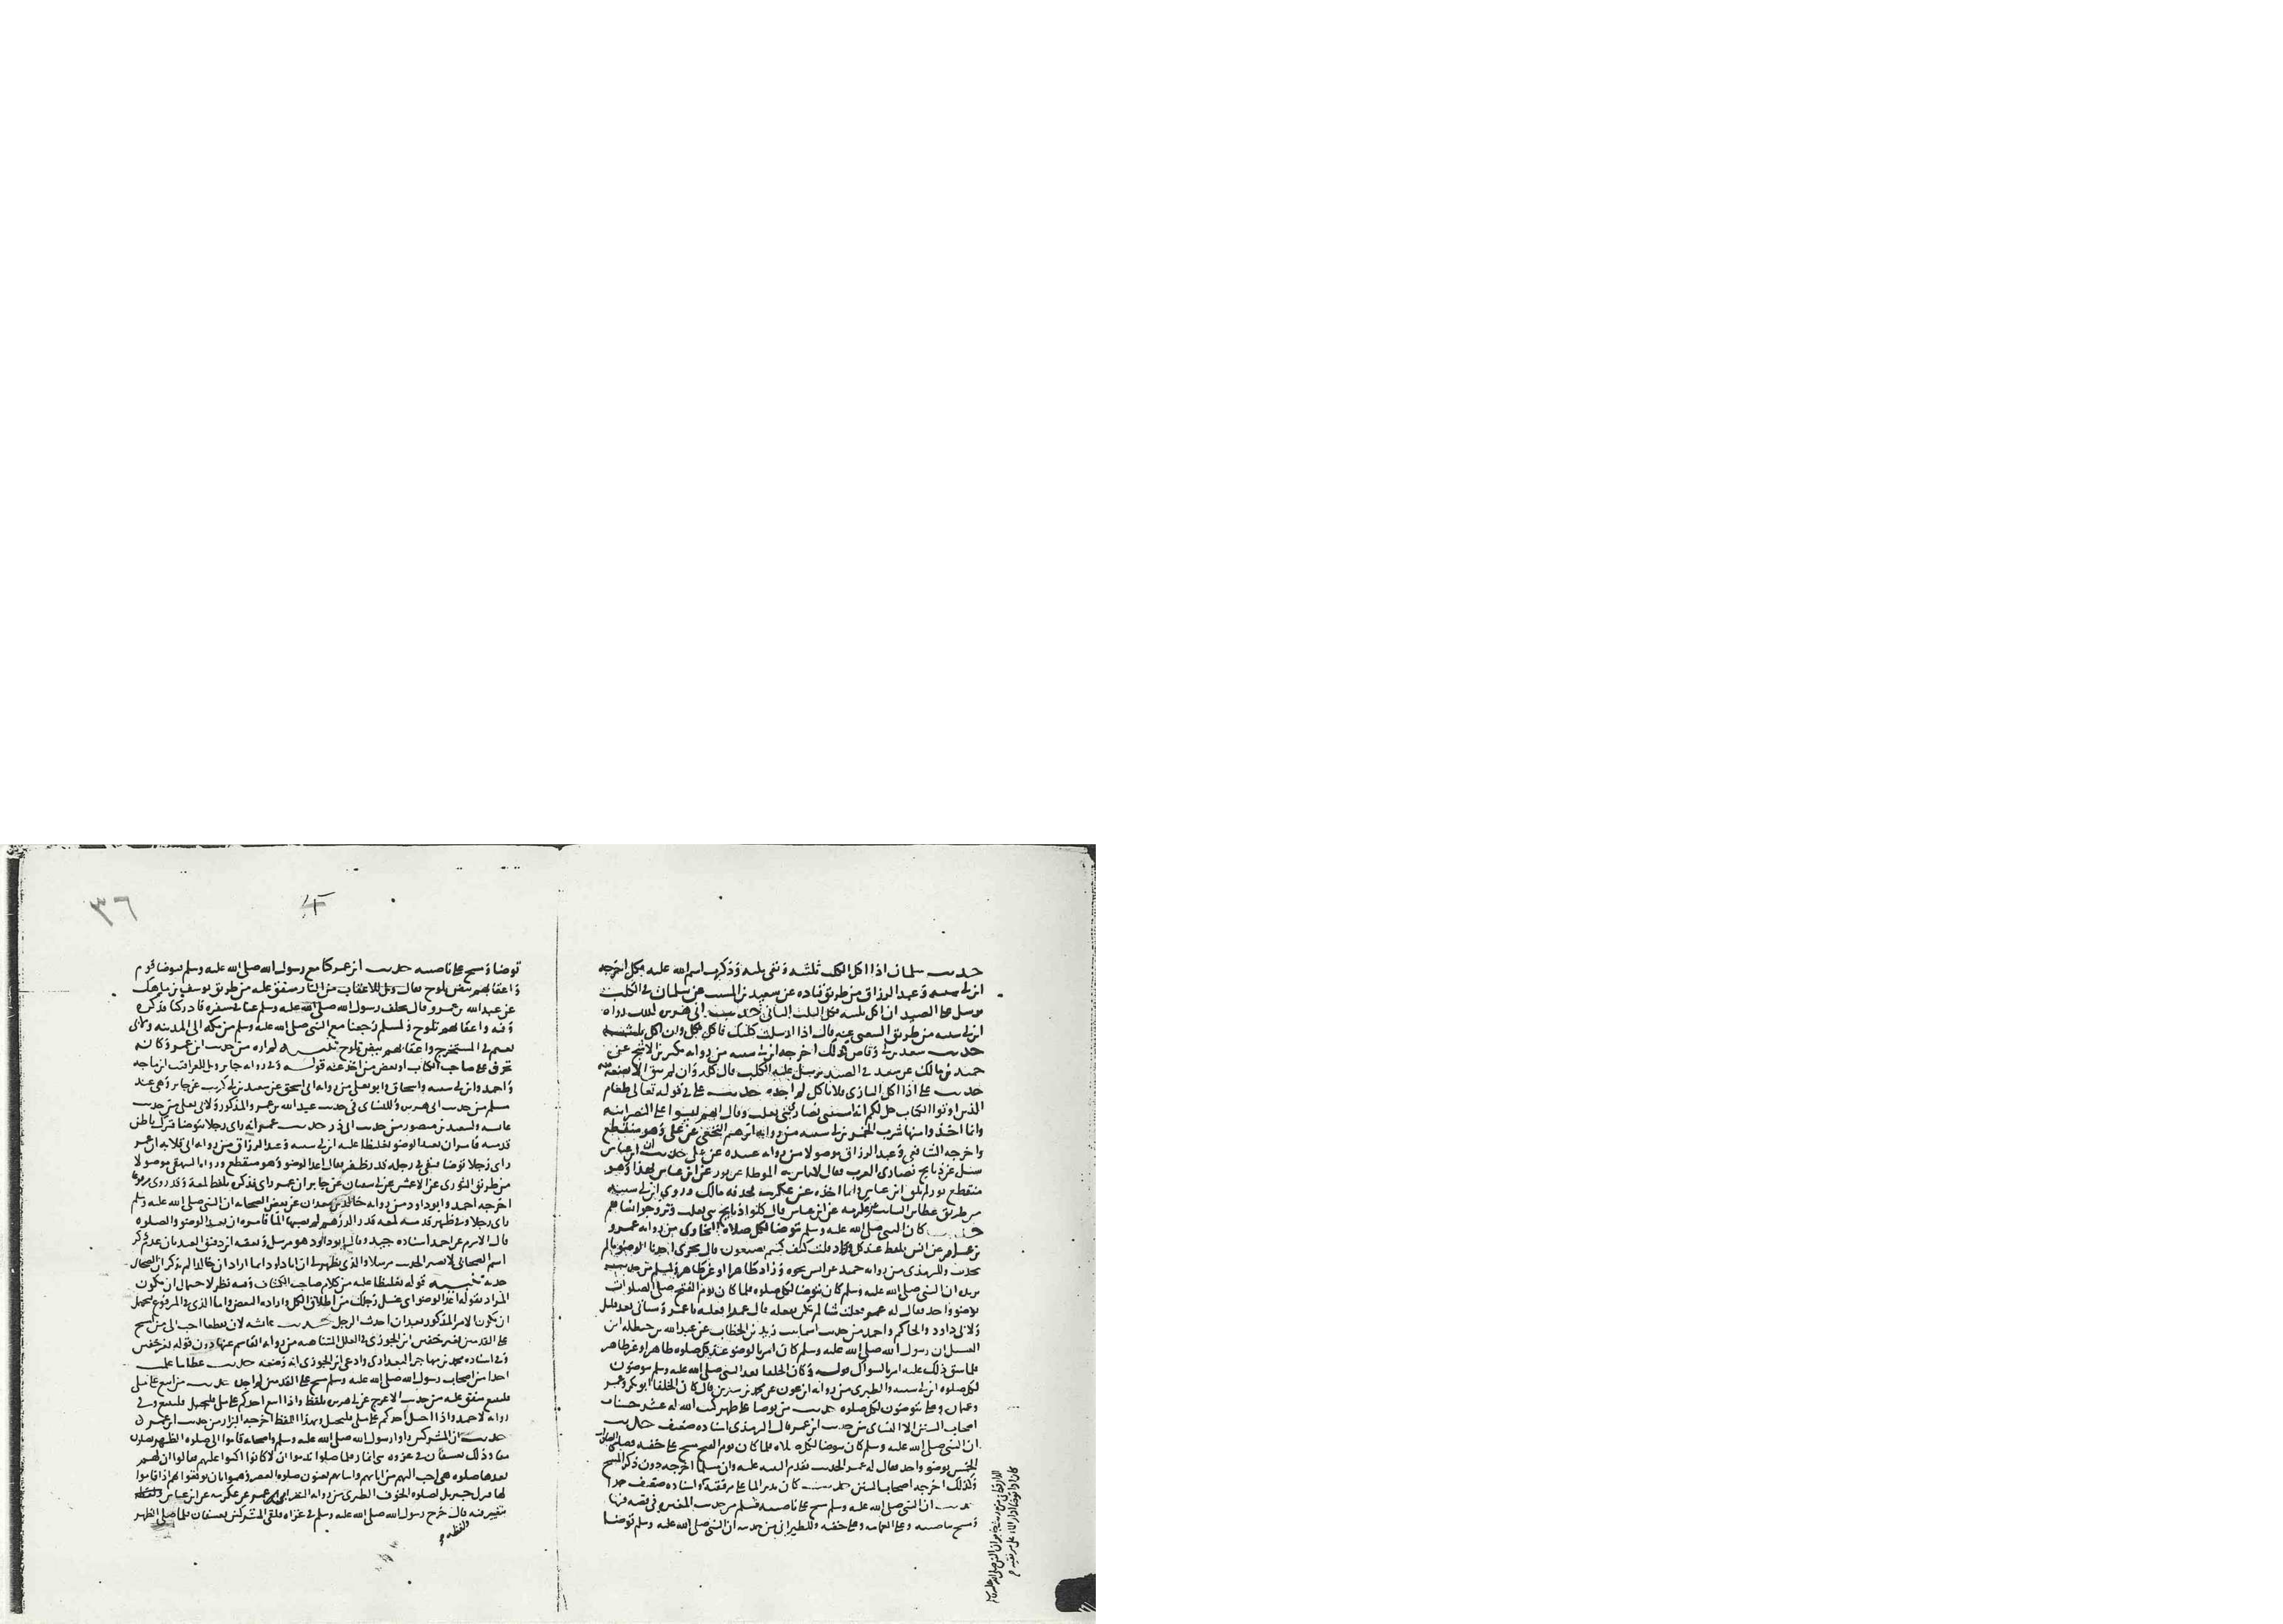 حديث سلمان اذا اكل الكلب ثلثيه وبقي ثلثه وذكرت اسم الله عليه فكل اخرجه
ابن ابي شيبه وعبد الرزاق من طريق قتاده عن سعيد بن المسيب عن سلمان في الكلب
يرسل على الصيد ان اكل ثلثيه فكل الثلث الباقي حديث ابي هريره كذلك رواه
ابن ابي شيبه من طريق الشعبي عنه قال اذا ارسلت كلبك فاكل فكل وان اكل ثلثيه
حديث سعد بن ابي وقاص كذلك اخرجه ابن ابي شيبه من روايه بكير بن الاشج عن
حميد بن مالك عن سعد في الصيد يرسل عليه الكلب قال كله وان لم يبق الا بضعه منه
حديث علي اذا اكل البازي فلا تاكل لم اجده حديث علي في قوله تعالى وطعام
الذين اوتوا الكتاب حل لكم انه استثنى نصارى بني تغلب وقال انهم ليسوا على النصرانيه
وانما اخذوا منها شرب الخمر ابن ابي شيبه من روايه ابرهيم النخعي عن علي وهو منقطع
واخرجه الشافعي وعبد الرزاق موصولا من روايه عبيده عن علي حديث ابن عباس
سئل عن ذبايح نصارى العرب فقال لا باس به الموطا عن ثور عن ابن عباس بهذا وهو
منقطع ثور لم يلق ابن عباس وانما اخذه عن عكرمه فحذفه مالك وروى ابن ابي شيبه
من طريق عطا بن السائب عن عكرمه عن ابن عباس قال كلوا ذبايح بني تغلب وتزوجوا نساهم
حديث كان النبي صلى الله عليه وسلم يتوضا لكل صلاه البخاري من روايه عمرو
بن عامر عن انس بلفظ عند كل وزاد قلت كيف كنتم تصنعون قال يجزى احدنا الوضو مالم
يحدث وللترمذي من روايه حميد عن انس نحوه وزاد طاهرا او غير طاهر ولمسلم من حديث
بريده ان النبي صلى الله عليه وسلم كان يتوضا لكل صلوه فلما كان يوم الفتح صلى الصلوات
بوضو واحد فقال له عمر فعلت شيا لم تكن تفعله قال عمدا فعلته يا عمر وسياتي بعد قليل
ولابي داود والحاكم واحمد من حديث اسما بنت زيد بن الخطاب عن عبد الله بن حنظله ابن
الغسيل ان رسول الله صلى الله عليه وسلم كان امر بالوضو عند كل صلوه طاهرا او غير طاهر
فلما شق ذلك عليه امر بالسواك قوله وكان الخلفا بعد النبي صلى الله عليه وسلم يتوضون
لكل صلوه ابن ابي شيبه والطبري من روايه ابن عون عن محمد بن سيرين قال كان الخلفا ابو بكر وعمر
وعثمان وعلي يتوضون لكل صلوه حديث من توضا على طهر كتب الله له عشر حسنات
اصحاب السنن الا النساي من حديث ابن عمر قال الترمذي اسناده ضعيف حديث
ان النبي صلى الله عليه وسلم كان يتوضا لكل صلاه فلما كان يوم الفتح مسح على خفيه وصلى الصلوات
الخمس بوضو واحد فقال له عمر الحديث تقدم التنبيه عليه وان مسلما اخرجه دون ذكر المسح
وكذلك اخرجه اصحاب السنن حديث كان يدير الما على مرفقيه واسناده ضعيف جدا
حديث ان النبي صلى الله عليه وسلم مسح على ناصيته مسلم من حديث المغيره في قصه فيها
ومسح بناصيته وعلى العمامه وعلى خفيه وللطبراني من حديثه ان النبي صلى الله عليه وسلم توضا
٣٦
توضا ومسح على ناصيته حديث ابن عمر كنا مع رسول الله صلى الله عليه وسلم فتوضا قوم
واعقابهم بيض تلوح فقال ويل للاعقاب من النار متفق عليه من طريق يوسف بن ماهك
عن عبد الله بن عمرو قال تخلف رسول الله صلى الله عليه وسلم عنا في سفره فادركنا فذكره
وفيه واعقابهم تلوح ولمسلم رجعنا مع النبي صلى الله عليه وسلم من مكه الى المدينه ولابي
نعيم في المستخرج واعقابهم بيض تلوح تنبيه لم اره من حديث ابن عمر وكانه
تحرف على صاحب الكتاب او بعض من اخذ عنه قوله وفي روايه جابر ويل للعراقيب ابن ماجه
واحمد وابن ابي شيبه واسحاق وابو يعلى من روايه ابي اسحق عن سعيد بن ابي كريب عن جابر وهي عند
مسلم من حديث ابي هريره وللنساي في حديث عبد الله بن عمرو المذكور ولابي يعلى من حديث
عائشه ولسعيد بن منصور من حديث ابي ذر حديث عمر انه راى رجلا يتوضا فترك باطن
قدميه فامر ان يعيد الوضو تغليظا عليه ابن ابي شيبه وعبد الرزاق من روايه ابي قلابه ان عمر
راى رجلا توضا فبقي في رجله قدر ظفر فقال اعد الوضو وهو منقطع ورواه البيهقي موصولا
من طريق الثوري عن الاعمش عن ابي سفيان عن جابر ان عمر راى فذكره بلفظ لمعه وقد روي مرفوعا
اخرجه احمد وابو داود من روايه خالد بن معدان عن بعض الصحابه ان النبي صلى الله عليه وسلم
راى رجلا وفي ظهر قدميه لمعه قدر الدرهم لم يصبها الما فامره ان يعيد الوضو والصلوه
قال الاثرم عن احمد اسناده جيد وقال ابو داود هو مرسل وتعقبه ابن دقيق العيد بان عدم ذكر
اسم الصحابي لا يصير الحديث مرسلا والذي يظهر لي ان ابا داود انما اراد ان خالدا لم يذكر ان الصحابي
حدثه تنبيه قوله تغليظا عليه من كلام صاحب الكشاف وفيه نظر لاحتمال ان يكون
المراد بقوله اعد الوضو اي غسل رجلك من اطلاق الكل واراده البعض واما الذي في المرفوع فيحتمل
ان يكون الامر المذكور بعد ان احدث الرجل حديث عائشه لان تقطعا احب الي من امسح
على القدمين بغير خفين ابن الجوزي في العلل المتناهيه من روايه القاسم عنها دون قوله بغير خفين
وفي اسناده محمد بن مهاجر البغدادي وادعى ابن الجوزي انه وضعه حديث عطا ما علمت
احدا من اصحاب رسول الله صلى الله عليه وسلم مسح على القدمين لم اجده حديث من اتبع على ملي
فليتبع متفق عليه من حديث الاعرج عن ابي هريره بلفظ واذا اتبع احدكم على ملي فليتبع وفي
روايه لاحمد واذا احيل احدكم على ملي فليحتل وبهذا اللفظ اخرجه البزار من حديث ابن عمر
حديث ان المشركين راوا رسول الله صلى الله عليه وسلم واصحابه قاموا الى صلوه الظهر يصلون
معا وذلك بعسفان في غزوه ذي انمار فلما صلوا ندموا ان لا كانوا اكبوا عليهم فقالوا ان لهم
بعدها صلوه هي احب اليهم من ابايهم وابنايهم يعنون صلوه العصر وهموا بان يوقعوا بهم اذا قاموا
لها فنزل جبريل بصلوه الخوف الطبري من روايه النضر ابي عمر عن عكرمه عن ابن عباس
بتغيير فيه قال خرج رسول الله صلى الله عليه وسلم في غزاه فلقي المشركين بعسفان فلما صلى الظهر